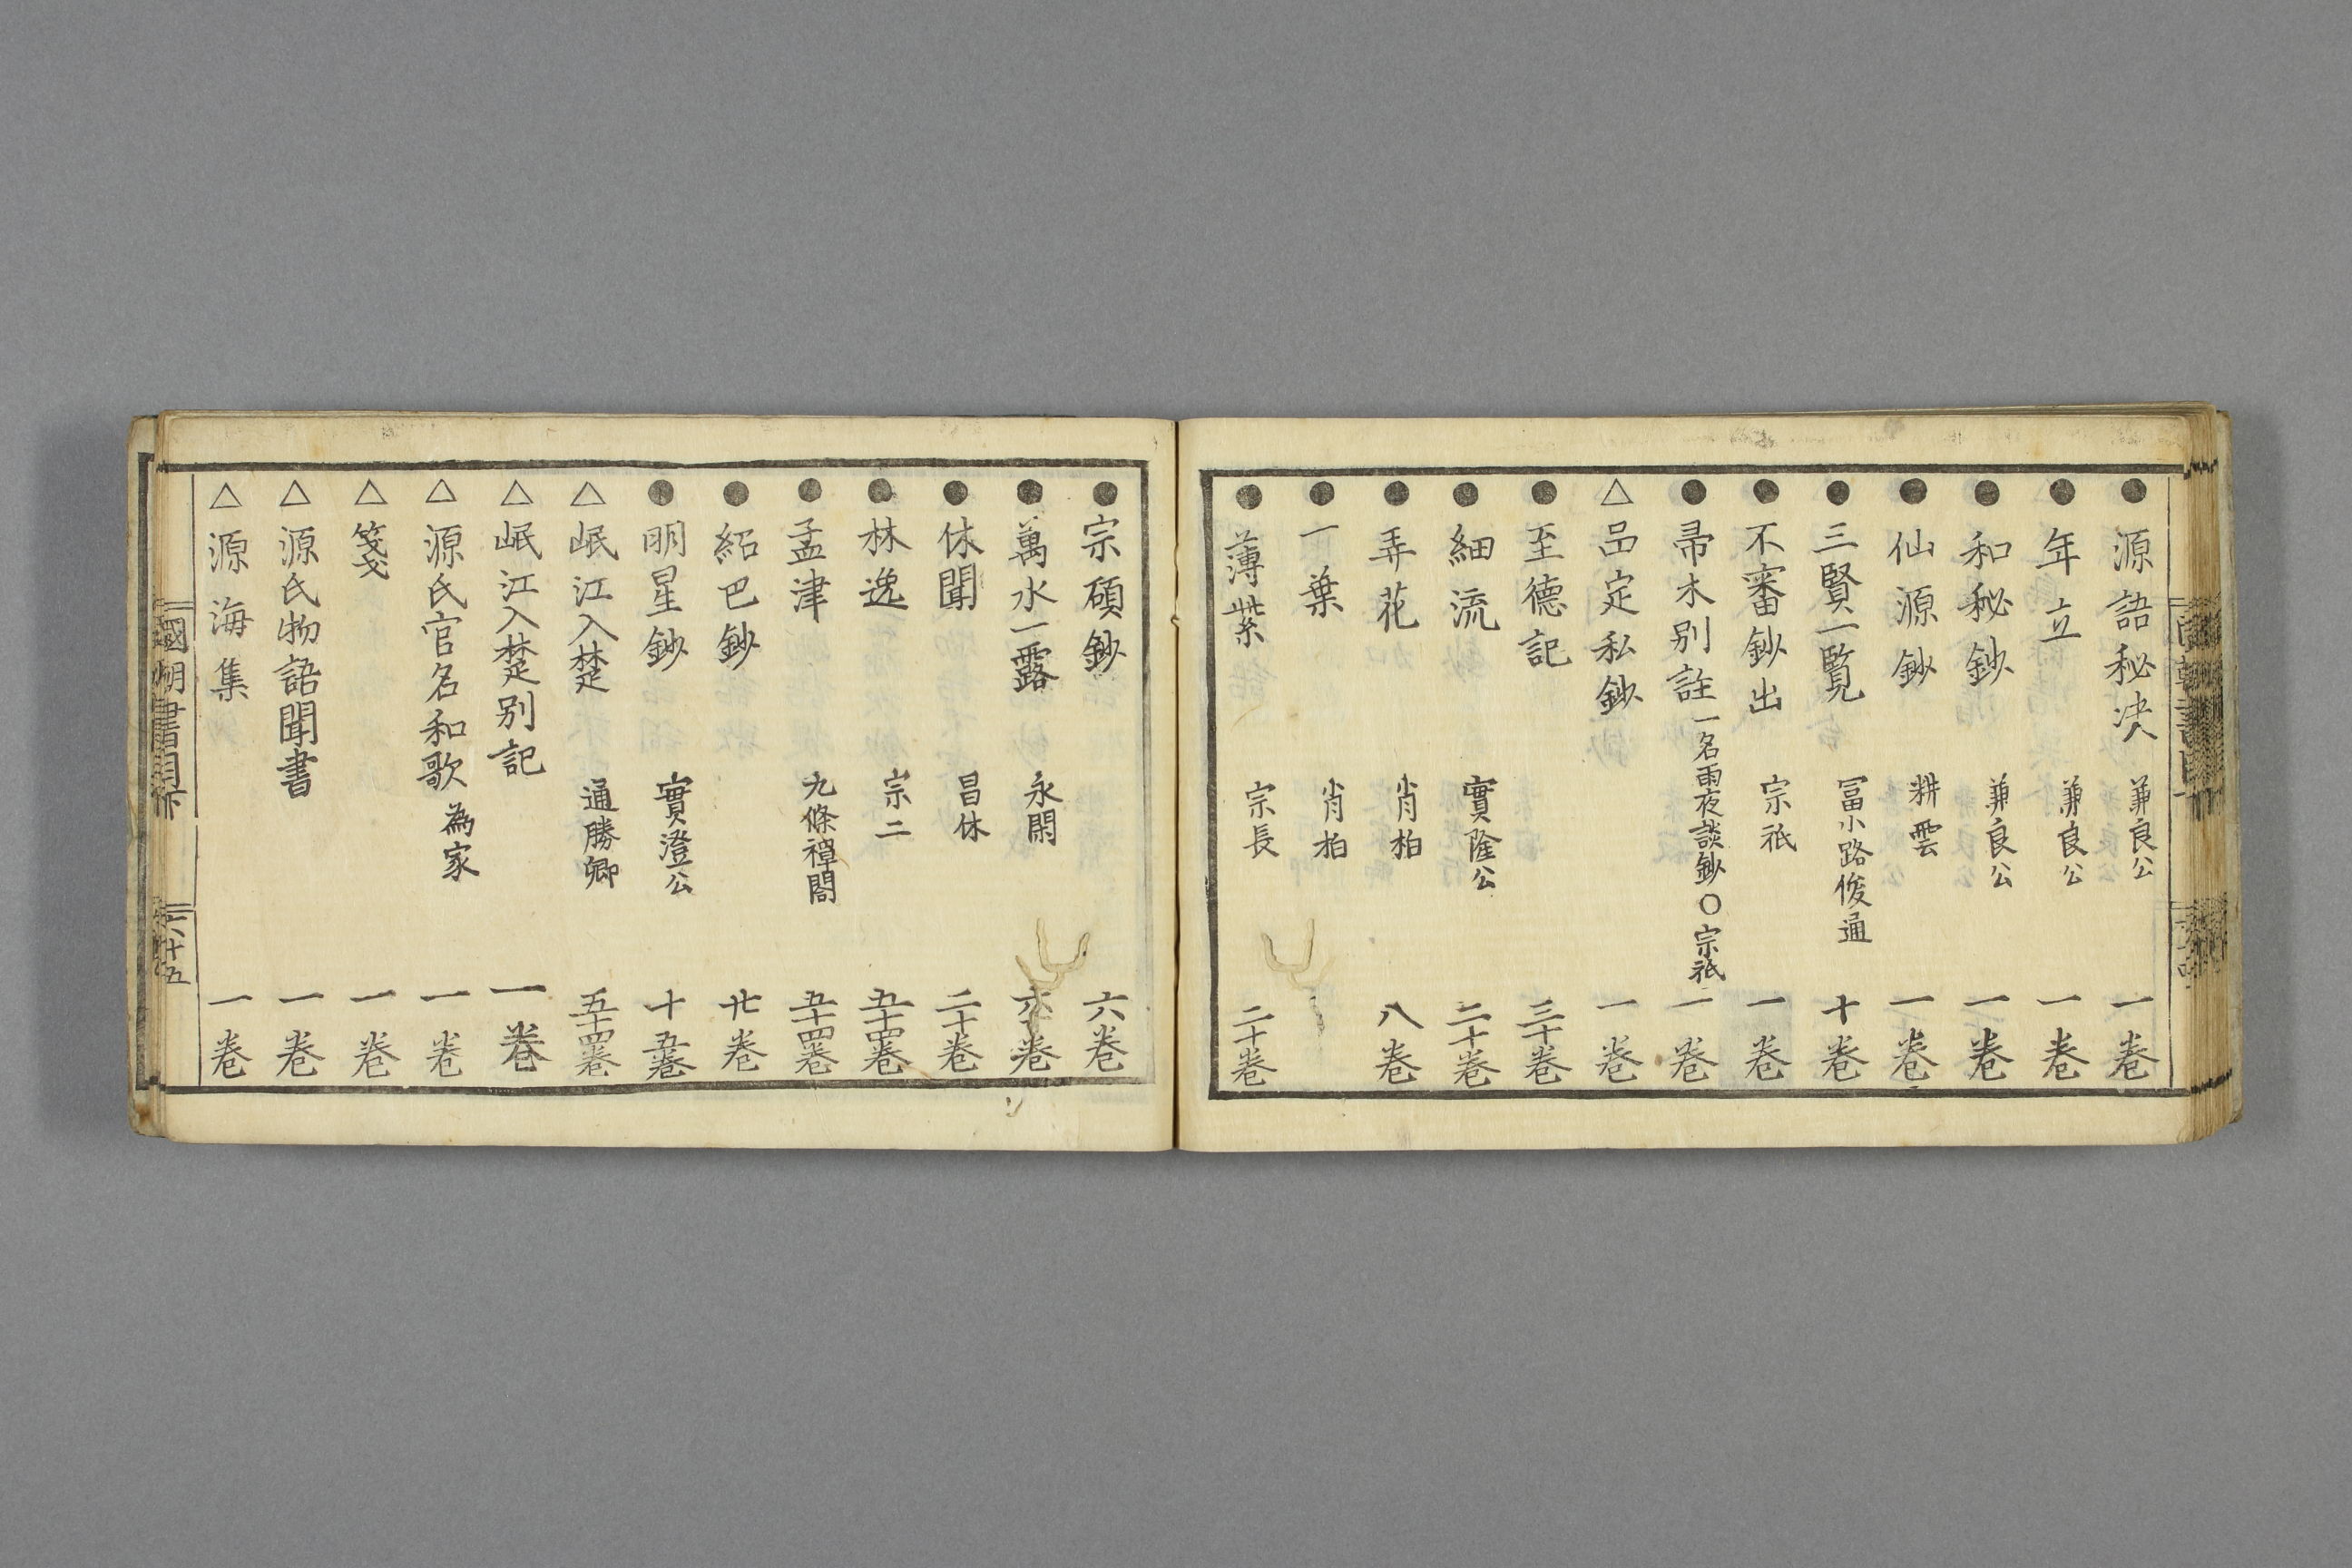 ● 源語秘决 兼良公 一卷
● 年立 兼良公 一卷
● 和秘鈔 兼良公 一卷
● 仙源鈔 耕雲 一卷
● 三賢一覽 冨小路俊通 十卷
● 不審鈔出 宗祇 一卷
● 帚木別註 一名雨夜談鈔○宗祇 一卷
△ 品定私鈔 一卷
● 至德記 三十卷
● 細流 實隆公 二十卷
● 弄花 肖柏 八卷
● 一葉 肖柏
● 薄紫 宗長 二十卷
● 宗碩鈔 六卷
● 萬水一露 永閑 卷
● 休聞 昌休 二十卷
● 林逸 宗二 五十四卷
● 孟津 九條禪閤 五十四卷
● 紹巴鈔 廿卷
● 明星鈔 實澄公 十五卷
△ 岷江入楚 通勝卿 五十四卷
△ 岷江入楚別記 一卷
△ 源氏官名和歌 為家 一卷
△ 箋 一卷
△ 源氏物語聞書 一卷
△ 源海集 一卷
國朝書目
六十五